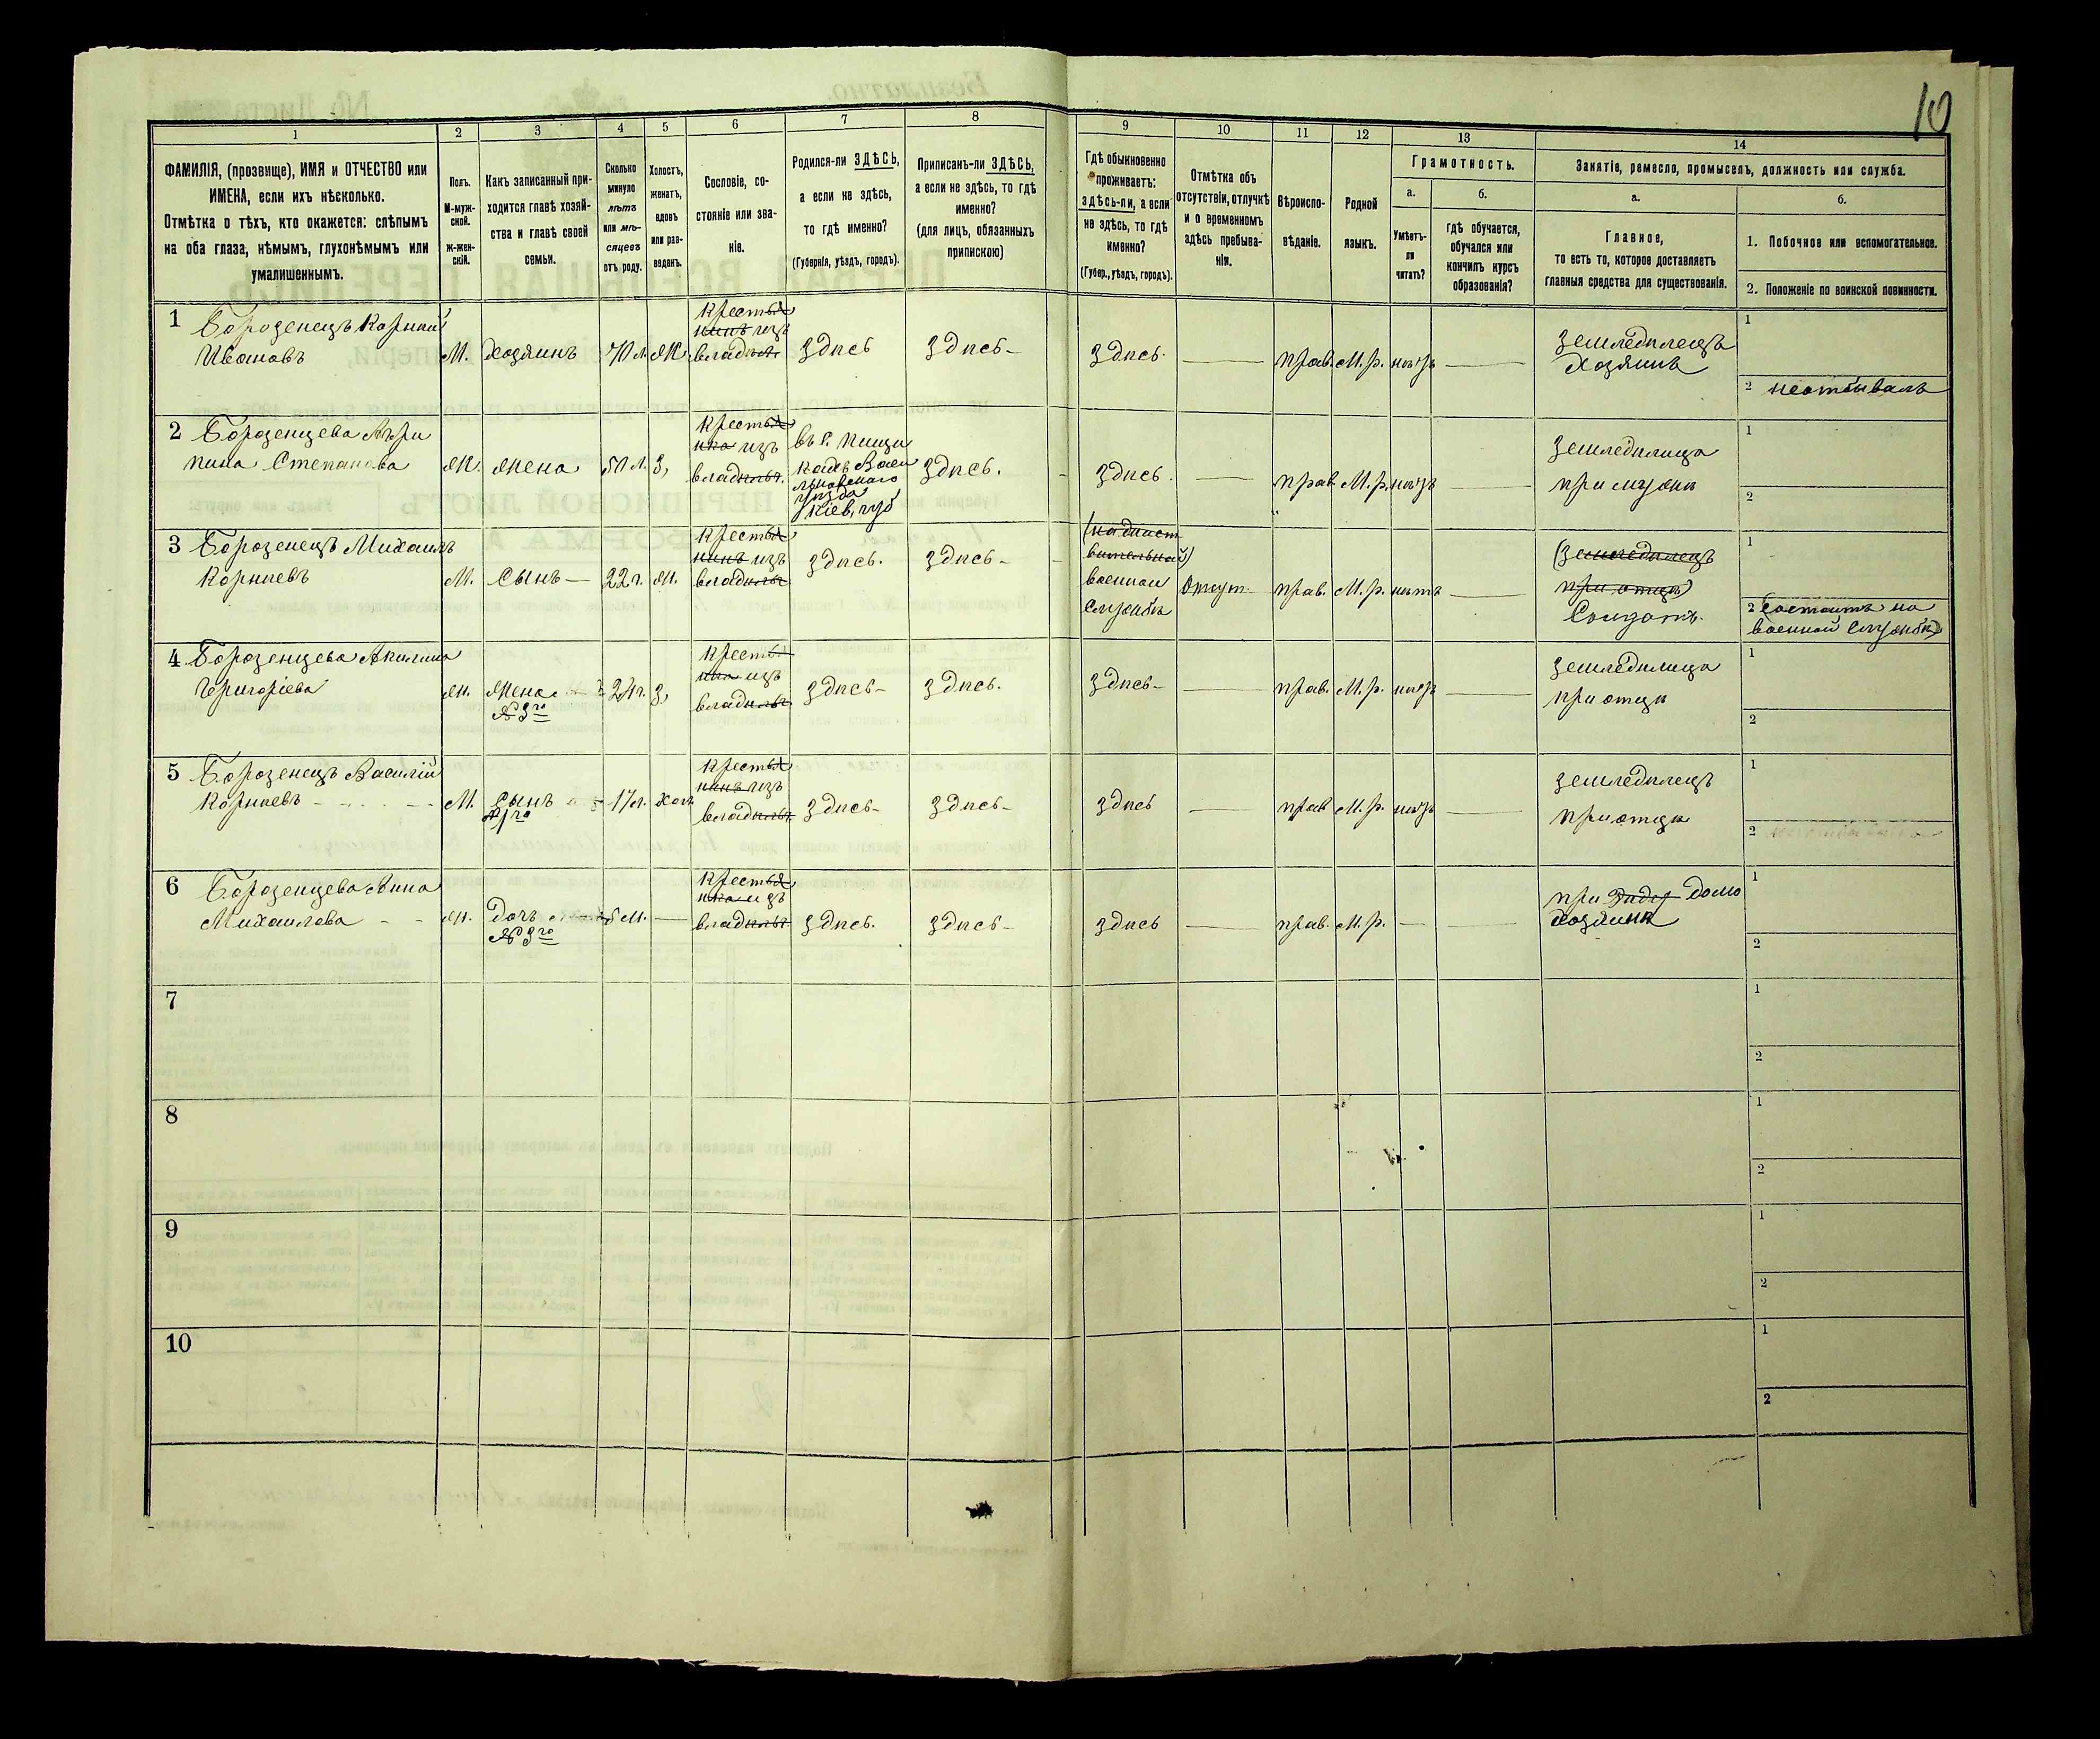 10
1
2
3
4
5
6
7
8
9
10
11
12
13
14
ФАМИЛІЯ, (прозвище), ИМЯ и ОТЧЕСТВО или
ИМЕНА, если ихъ нѣсколько.
Отмѣтка о тѣхъ, кто окажется: слѣпымъ
на оба глаза, нѣмымъ, глухонѣмымъ или
умалишеннымъ.
Полъ.
М-муж-
ской.
ж-жен-
скій.
Какъ записанный при-
ходится главѣ хозяй-
ства и главѣ своей
семьи.
Сколько
минуло
лѣтъ
или мѣ-
сяцевъ
отъ роду.
Холостъ,
женатъ,
вдовъ
или раз-
веденъ.
Сословіе, со-
стояніе или зва-
ніе.
Родился-ли ЗДѢСЬ,
а если не здѣсь,
то гдѣ именно?
(Губернія, уѣздъ, городъ).
Приписанъ-ли ЗДѢСЬ,
а если не здѣсь, то гдѣ
именно?
(для лицъ, обязанныхъ
припискою)
Гдѣ обыкновенно
проживаетъ:
здѣсь-ли, а если
не здѣсь, то гдѣ
именно?
(Губер., уѣздъ, городъ).
Отмѣтка объ
отсутствіи, отлучкѣ
и о временномъ
здѣсь пребыва-
ніи.
Вѣроиспо-
вѣданіе.
Родной
языкъ.
Грамотность.
а.
Умѣетъ-
ли
читать?
б.
гдѣ обучается,
обучался или
кончилъ курсъ
образованія?
Занятіе, ремесло, промыселъ, должность или служба.
а.
Главное,
то есть то, которое доставляетъ
главныя средства для существованія.
б.
1. Побочное или вспомогательное.
2. Положеніе по воинской повинности.
1
Бороденецъ Корній
Ивановъ
М.
Хозяинъ
70 л.
Ж.
Крестья
нинъ изъ
владѣль
здѣсь
здѣсь
здѣсь
прав.
М. р.
нѣтъ
земледѣлецъ
Хозяинъ
1
2 неотбывалъ
2
Бороденцева Агри
пина Степанова
Ж.
Жена
50 л.
З,
Крестья
нка изъ
владѣль
въ с.
уѣзда
Кіев. губ
здѣсь.
здѣсь
прав
М. р.
нѣтъ
земледѣлица
при мужѣ
1
2
3
Бороденецъ Михаилъ
Корніевъ
М.
Сынъ
22 г.
Ж.
Крестья
нинъ изъ
владѣль
здѣсь.
здѣсь
(на дѣйст
вительной)
военной
службѣ
Отсут.
прав.
М. р.
нѣтъ
(земледѣлецъ
при отцѣ)
Солдатъ.
1
2 Состоитъ на
военной службѣ
4
Бороденцева Акилина
Григоріева
Ж.
Жена
№ 3го
24 г.
З,
Крестья
нка изъ
владѣль
здѣсь
здѣсь.
здѣсь
прав.
М. р.
нѣтъ
земледѣлица
при отцѣ
1
2
5
Бороденецъ Василій
Корніевъ
М.
Сынъ
№ 1го
17 л.
Хол
Крестья
нинъ изъ
владѣль
здѣсь
здѣсь
здѣсь
прав
М. р.
нѣтъ
земледѣлецъ
при отцѣ
1
2
6
Бороденцева Анна
Михаилова
Ж.
Дочь
№ 3го
5 м.
Крестья
нка изъ
владѣль
здѣсь.
здѣсь
здѣсь
прав.
М. р.
при домо
хозяинѣ
1
2
7
1
2
8
1
2
9
1
2
10
1
2